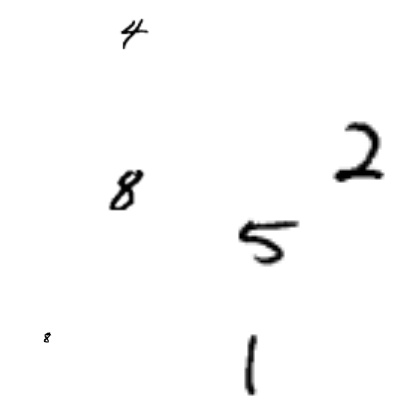 4
2
8
5
8
1